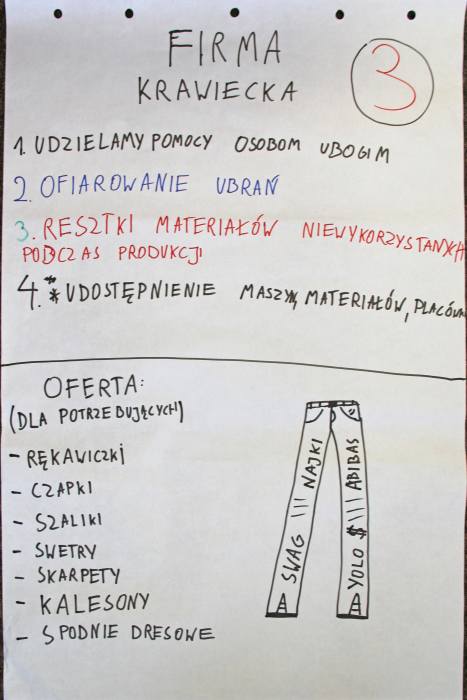 FIRMA
KRAWIECKA
3
1. UDZIELAMY POMOCY OSOBOM UBOGIM
2. OFIAROWANIE UBRAŃ
3. RESZTKI MATERIAŁÓW NIEWYKORZYSTANYCH
PODCZAS PRODUKCJI
4. * UDOSTĘPNIENIE MASZYN, MATERIAŁÓW,
OFERTA:
(DLA POTRZEBUJĄCYCH)
- RĘKAWICZKI
- CZAPKI
- SZALIKI
- SWETRY
- SKARPETY
- KALESONY
- SPODNIE DRESOWE
SWAG \\\ NAJKI
YOLO $ \\\ ABIBAS